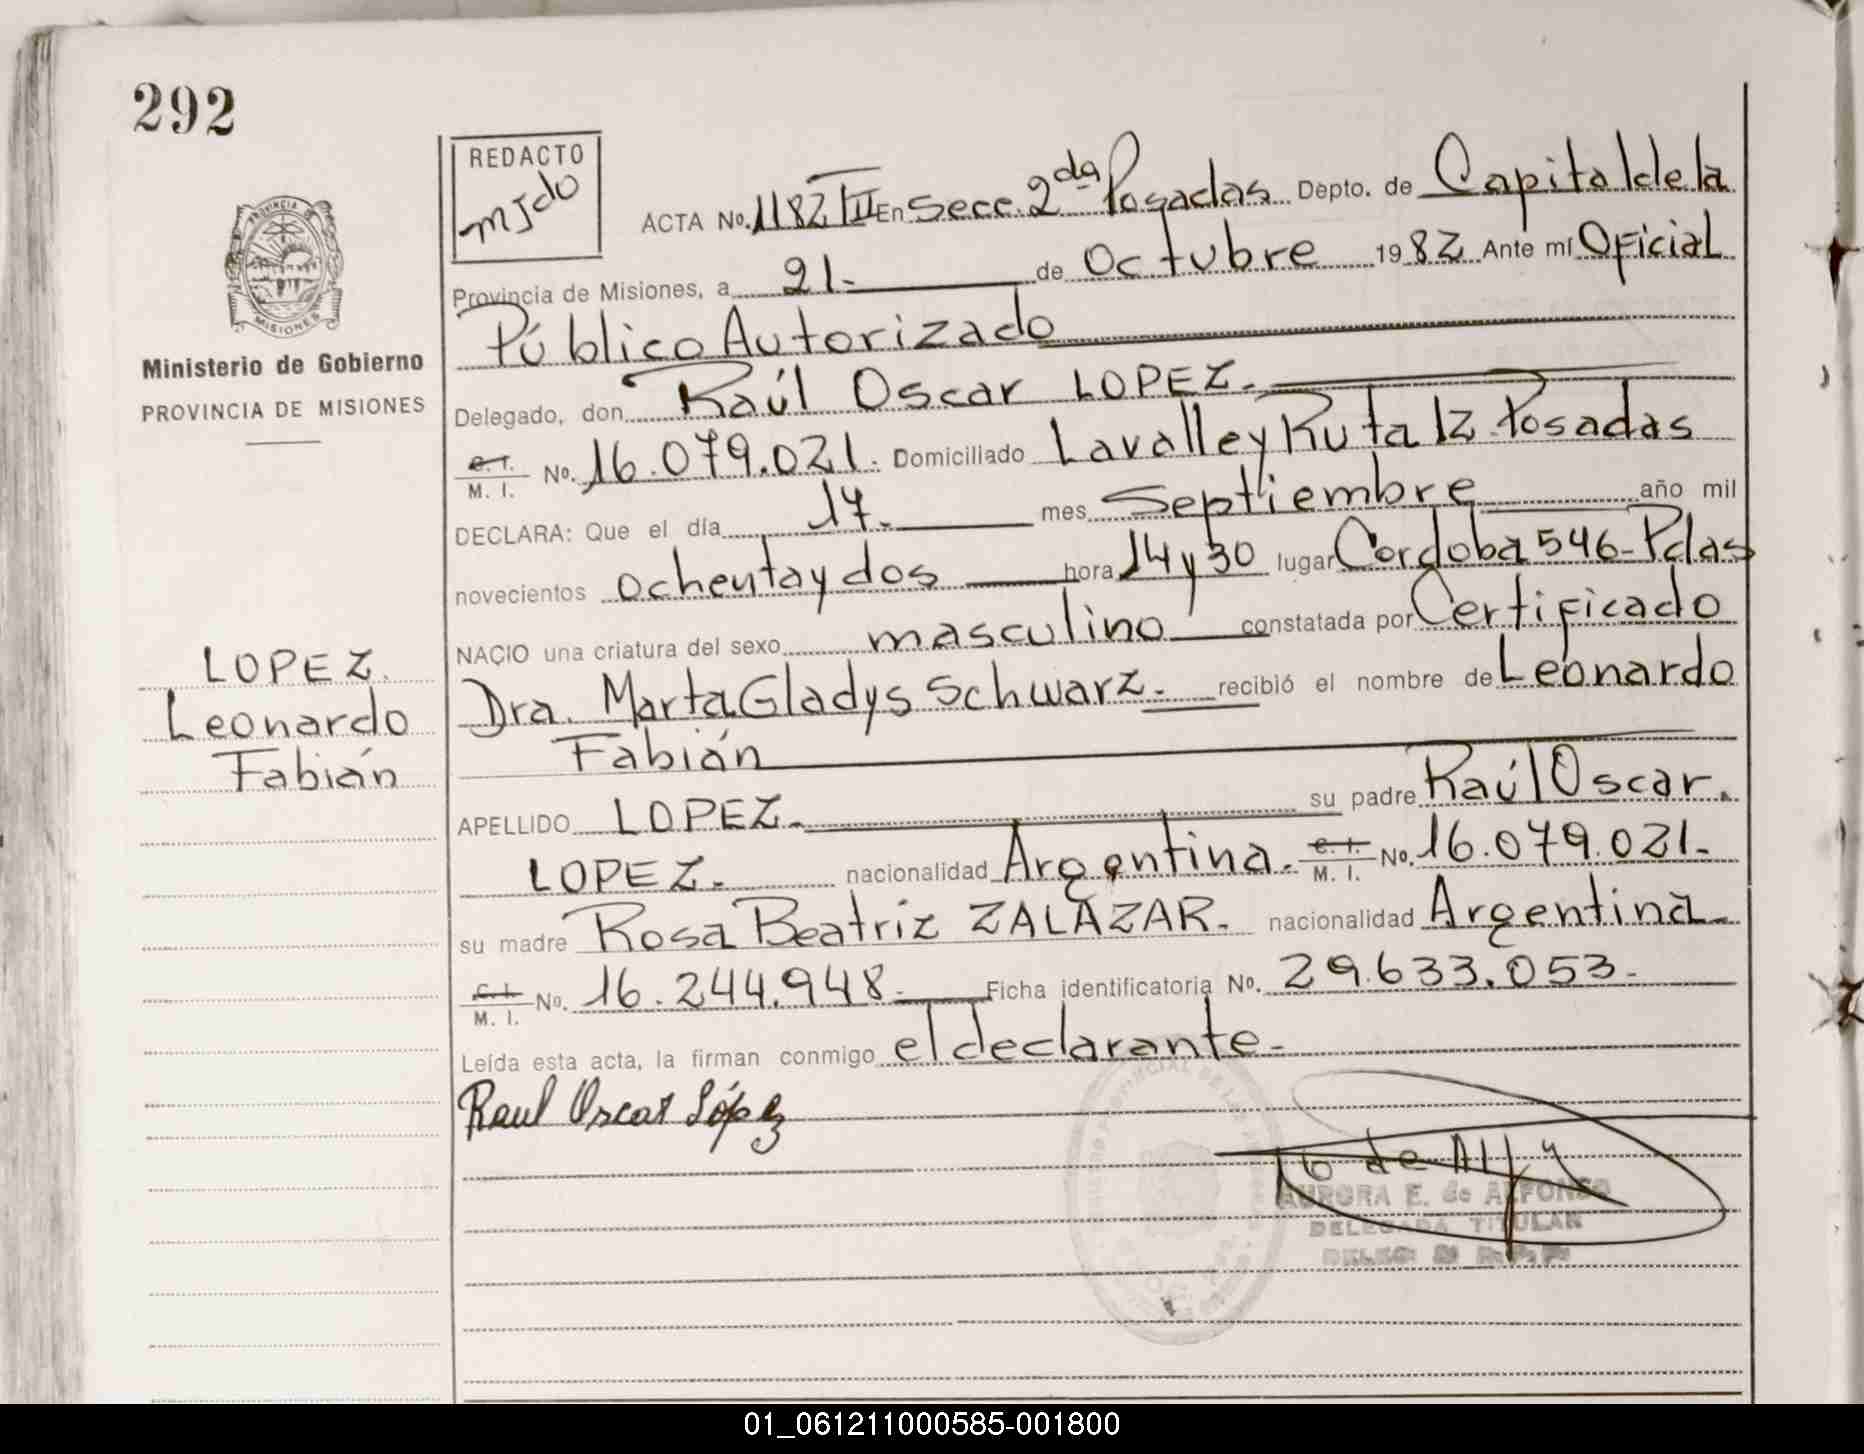 292
REDACTO
mjdo
PROVINCIA DE
MISIONES
Ministerio de Gobierno
PROVINCIA DE MISIONES
ACTA No. 1182 TII En Secc. 2da Posadas Depto. de Capital de la
Provincia de Misiones, a 21.- de Octubre 1982 Ante mí Oficial
Público Autorizado
Delegado, don Raúl Oscar LOPEZ.-
C. I.
M. I. No. 16.079.021. Domiciliado Lavalle y Ruta 12 Posadas
DECLARA: Que el día 17.- mes Septiembre año mil
novecientos ochenta y dos hora 14 y 30 lugar Cordoba 546-Pdas
NACIO una criatura del sexo masculino constatada por Certificado
Dra. Marta Gladys Schwarz.- recibió el nombre de Leonardo
Fabián
APELLIDO LOPEZ.- su padre Raúl Oscar.
LOPEZ.- nacionalidad Argentina.- C. I.
M. I. No. 16.079.021.-
su madre Rosa Beatriz ZALAZAR.- nacionalidad Argentina.-
C. I.
M. I. No. 16.244.948.- Ficha identificatoria No. 29.633.053.-
Leída esta acta, la firman conmigo el declarante.-
Raul Oscar López
LOPEZ.
Leonardo
Fabián
AURORA E. de ALFONSO
DELEGADA TITULAR
01_061211000585-001800